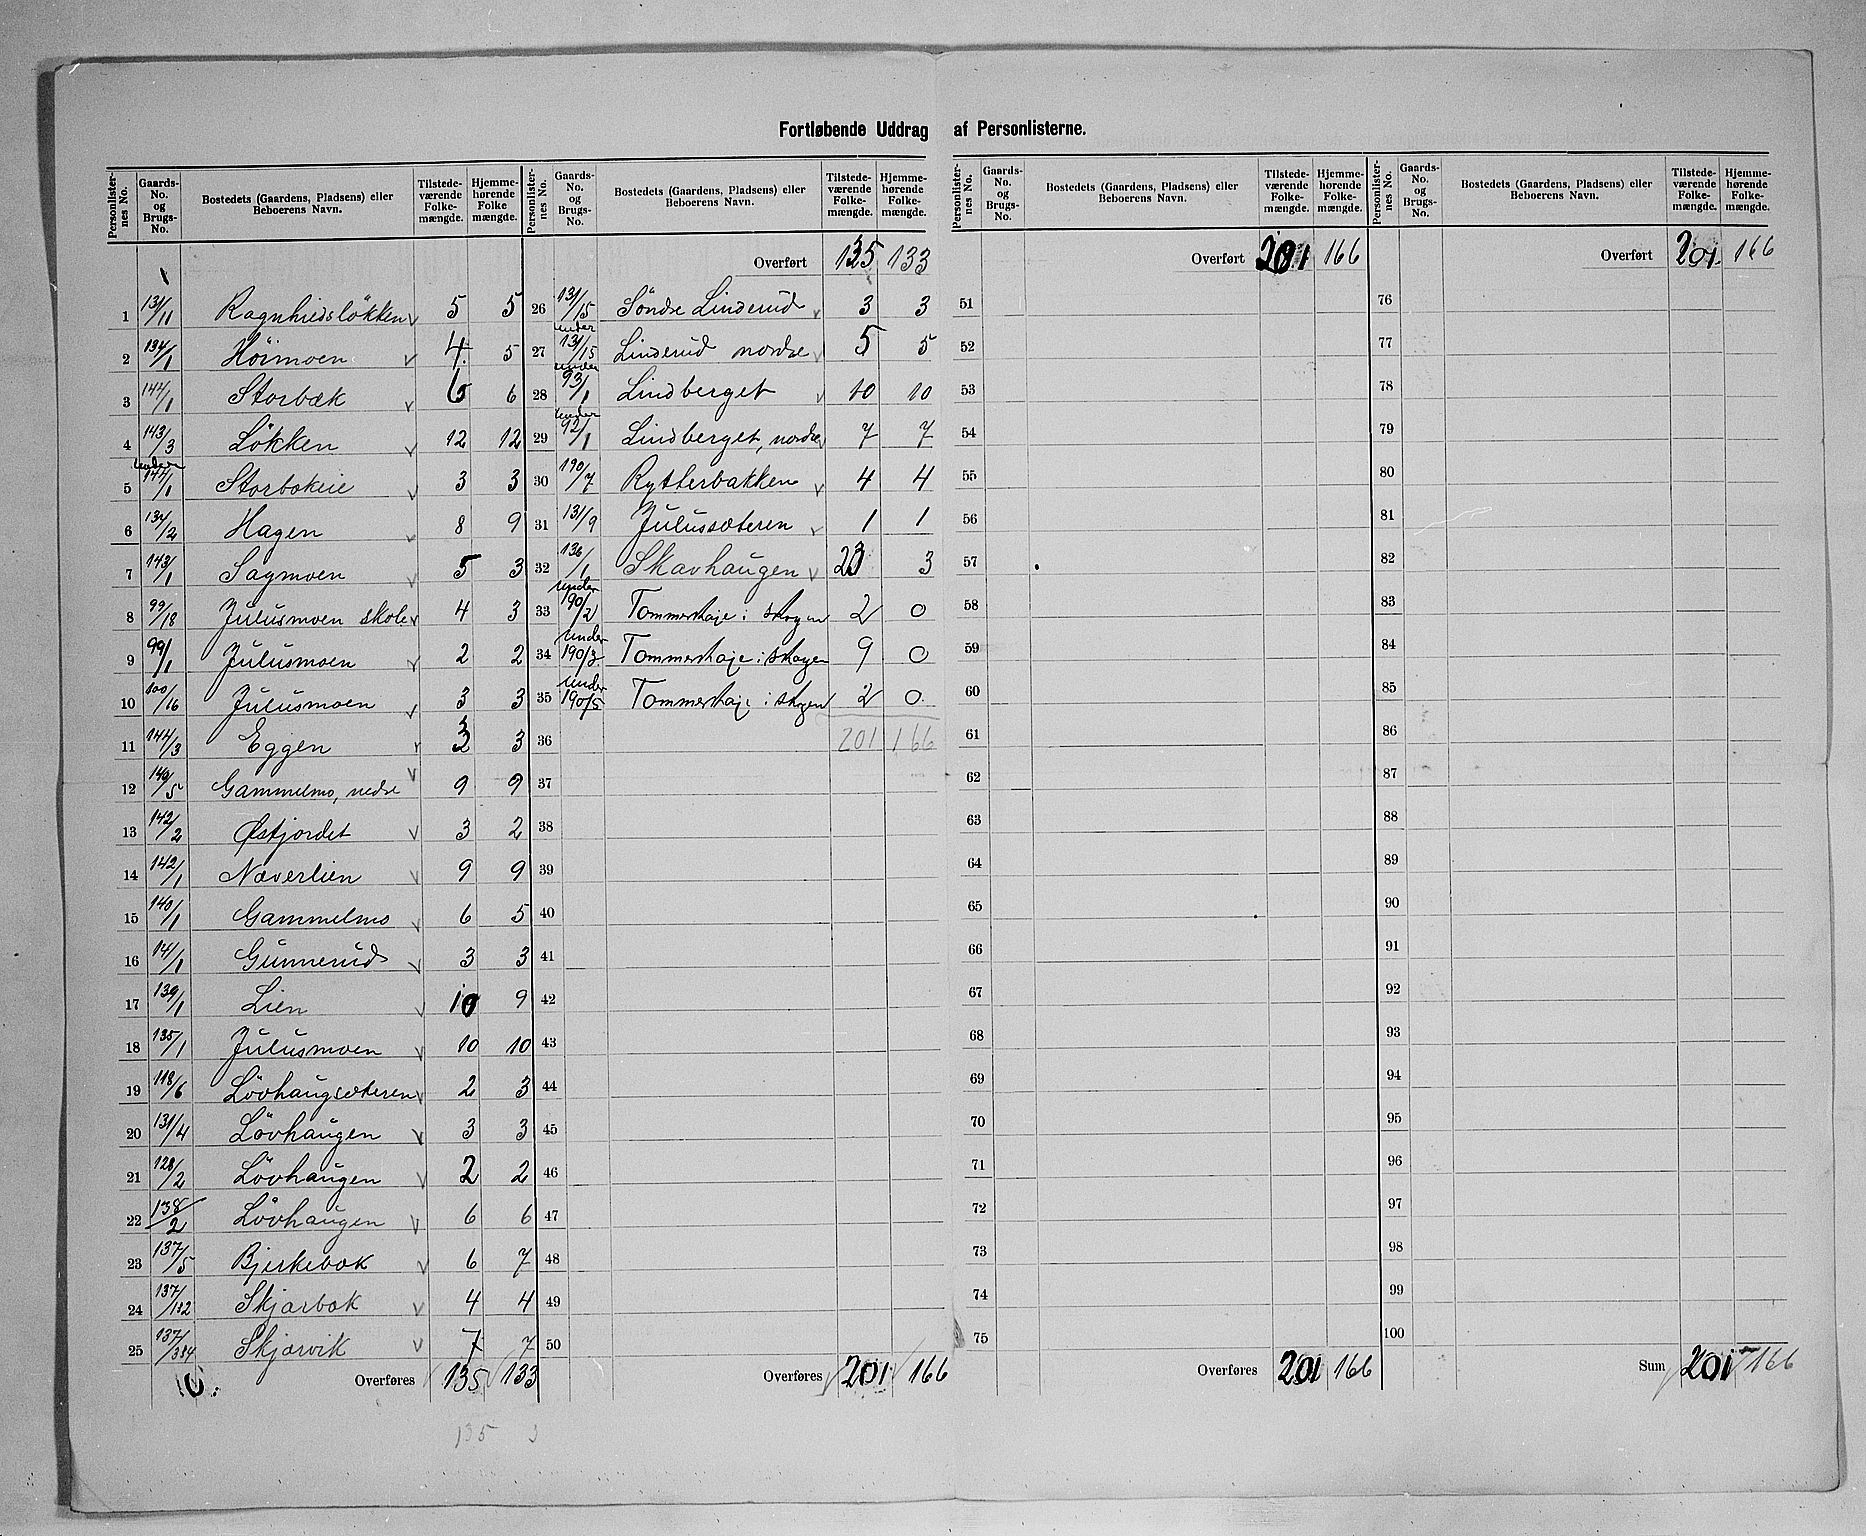 Fortløbende Uddrag af Personlisterne.
Personlister-nes No. | Gaards-No. og Brugs-No. | Bostedets (Gaardens, Pladsens) eller Beboerens Navn. | Tilstede-værende Folke-mængde. | Hjemme-hørende Folke mængde.
1 131/11 Ragnhildsløkken v 5 5
2 134/1 Höimoen v 4 5
3 144/1 Storbæk v 6 6
4 143/3 Løkken v 12 12
5 under 144/1 Storbækeie v 3 3
6 134/2 Hagen v 8 9
7 143/1 Sagmoen v 5 3
8 99/18 Julusmoen skole v 4 3
9 99/1 Julusmoen v 2 2
10 100/16 Julusmoen v 3 3
11 144/3 Eggen v 3 3
12 140/5 Gammelmo, nedre v 9 9
13 142/2 Østjordet v 3 2
14 142/1 Næverlien v 9 9
15 140/1 Gammelmo v 6 5
16 141/1 Gunnerud v 3 3
17 139/1 Lien v 10 9
18 135/1 Julusmoen v 10 10
19 118/6 Lövhaugsæteren v 2 3
20 131/4 Lövhaugen v 3 3
21 128/2 Lövhaugen v 2 2
22 138/2 Lövhaugen v 6 6
23 137/5 Bjerkebæk v 6 7
24 137/132 Skjærbæk v 4 4
25 137/384 Skjærvik v 7 7
Overføres 135 133
135 3
Personlister-nes No. | Gaards-No. og Brugs-No. | Bostedets (Gaardens, Pladsens) eller Beboerens Navn. | Tilstede-værende Folke-mængde. | Hjemme-hørende Folke-mængde.
Overført 135 133
26 131/15 Söndre Linderud v 3 3
27 under 131/15 Linderud nordre v 5 5
28 under 93/1 Lindberget v 10 10
29 under 92/1 Lindberget, nordre v 7 7
30 190/7 Rytterbakken v 4 4
31 131/9 Julussæteren v 1 1
32 136/1 Skavhaugen v 23 3
33 under 190/2 Tømmerkoje i skogen 2 0
34 under 190/3 Tømmerkoje i skogen 9 0
35 under 190/5 Tømmerkoje i skogen 2 0
36 201 166
37
38
39
40
41
42
43
44
45
46
47
48
49
50
Overføres 201 166
Personlister-nes No. | Gaards-No. og Brugs-No. | Bostedets (Gaardens, Pladsens) eller Beboerens Navn. | Tilstede-værende Folke-mængde. | Hjemme-hørende Folke-mængde.
Overført 201 166
51
52
53
54
55
56
57
58
59
60
61
62
63
64
65
66
67
68
69
70
71
72
73
74
75
Overføres 201 166
Personlister-nes No. | Gaards-No. og Brugs-No. | Bostedets (Gaardens, Pladsens) eller Beboerens Navn. | Tilstede-værende Folke-mængde. | Hjemme-hørende Folke-mængde.
Overført 201 166
76
77
78
79
80
81
82
83
84
85
86
87
88
89
90
91
92
93
94
95
96
97
98
99
100
Sum 201 166